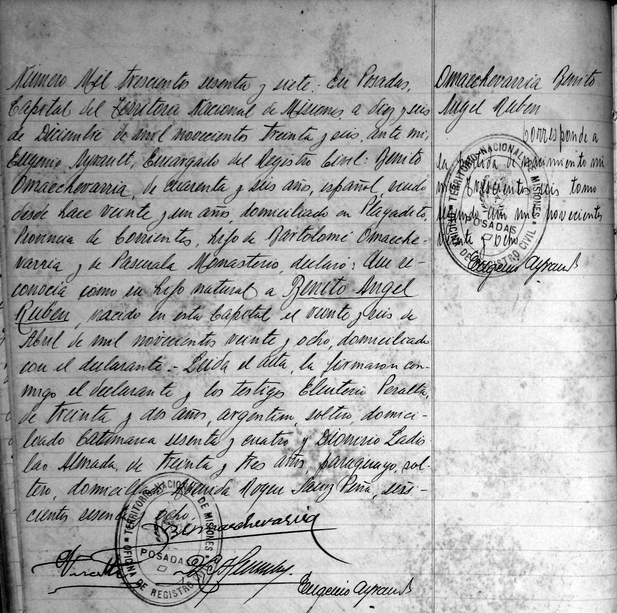 Número Mil trescientos sesenta y siete: En Posadas,
Capital del Territorio Nacional de Misiones, a diez y seis
de Diciembre de mil novecientos treinta y seis, ante mi,
Eugenio Ayrault, Encargado del Registro Civil: Benito
Omaechevarria, de cuarenta y seis años, español, viudo
desde hace veinte y un año, domiciliado en Playadito,
Provincia de Corrientes, hijo de Bartolomé Omaeche-
varria y de Pascuala Monasterio, declaró: Que re-
conocia como su hijo natural a Benito Angel
Ruben, nacido en esta Capital el veinte y seis de
Abril de mil novecientos veinte y ocho, domiciliado
con el declarante.- Leida el acta, la firmaron con-
migo el declarante y los testigos Eleuterio Peralta,
de treinta y dos años, argentino, soltero, domici-
liado Catamarca sesenta y cuatro y Dionicio Ladis
lao Almada, de treinta y tres años, paraguayo, sol-
tero, domiciliado Avenida Roque Saenz Peña, seis-
cientos sesenta ocho.
B Omaechevarria
Eugenio Ayrault
TERRITORIO NACIONAL DE MISIONES
POSADAS
OFICINA DE REGISTRO CIVIL
Omaechevarria Benito
Angel Ruben
Corresponde a
la partida de nacimiento mil
tomo
segundo año mil novecientos
veinte y ocho
Eugenio Ayrault
TERRITORIO NACIONAL DE MISIONES
POSADAS
OFICINA DE REGISTRO CIVIL